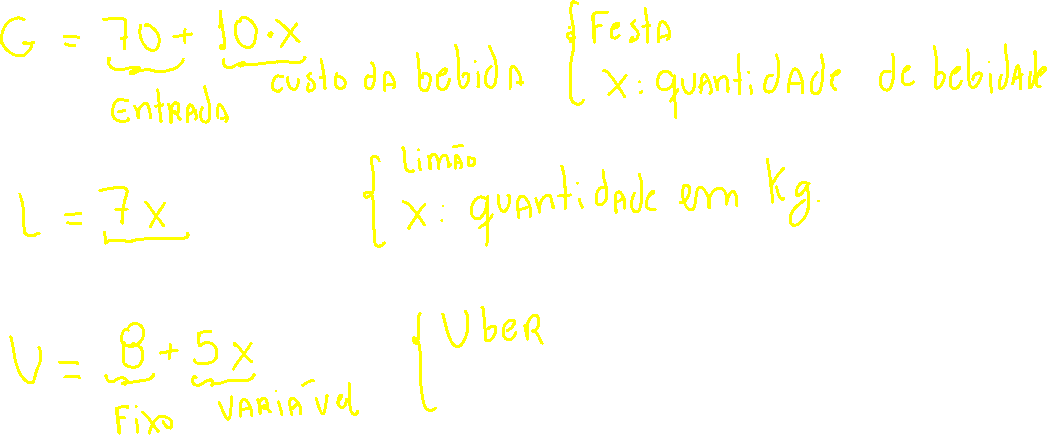 G = 70 + 10·x { Festa
Entrada custo da bebida x: quantidade de bebidade
L = 7x { Limão
x: quantidade em Kg.
U = 8 + 5x { Uber
Fixo variável